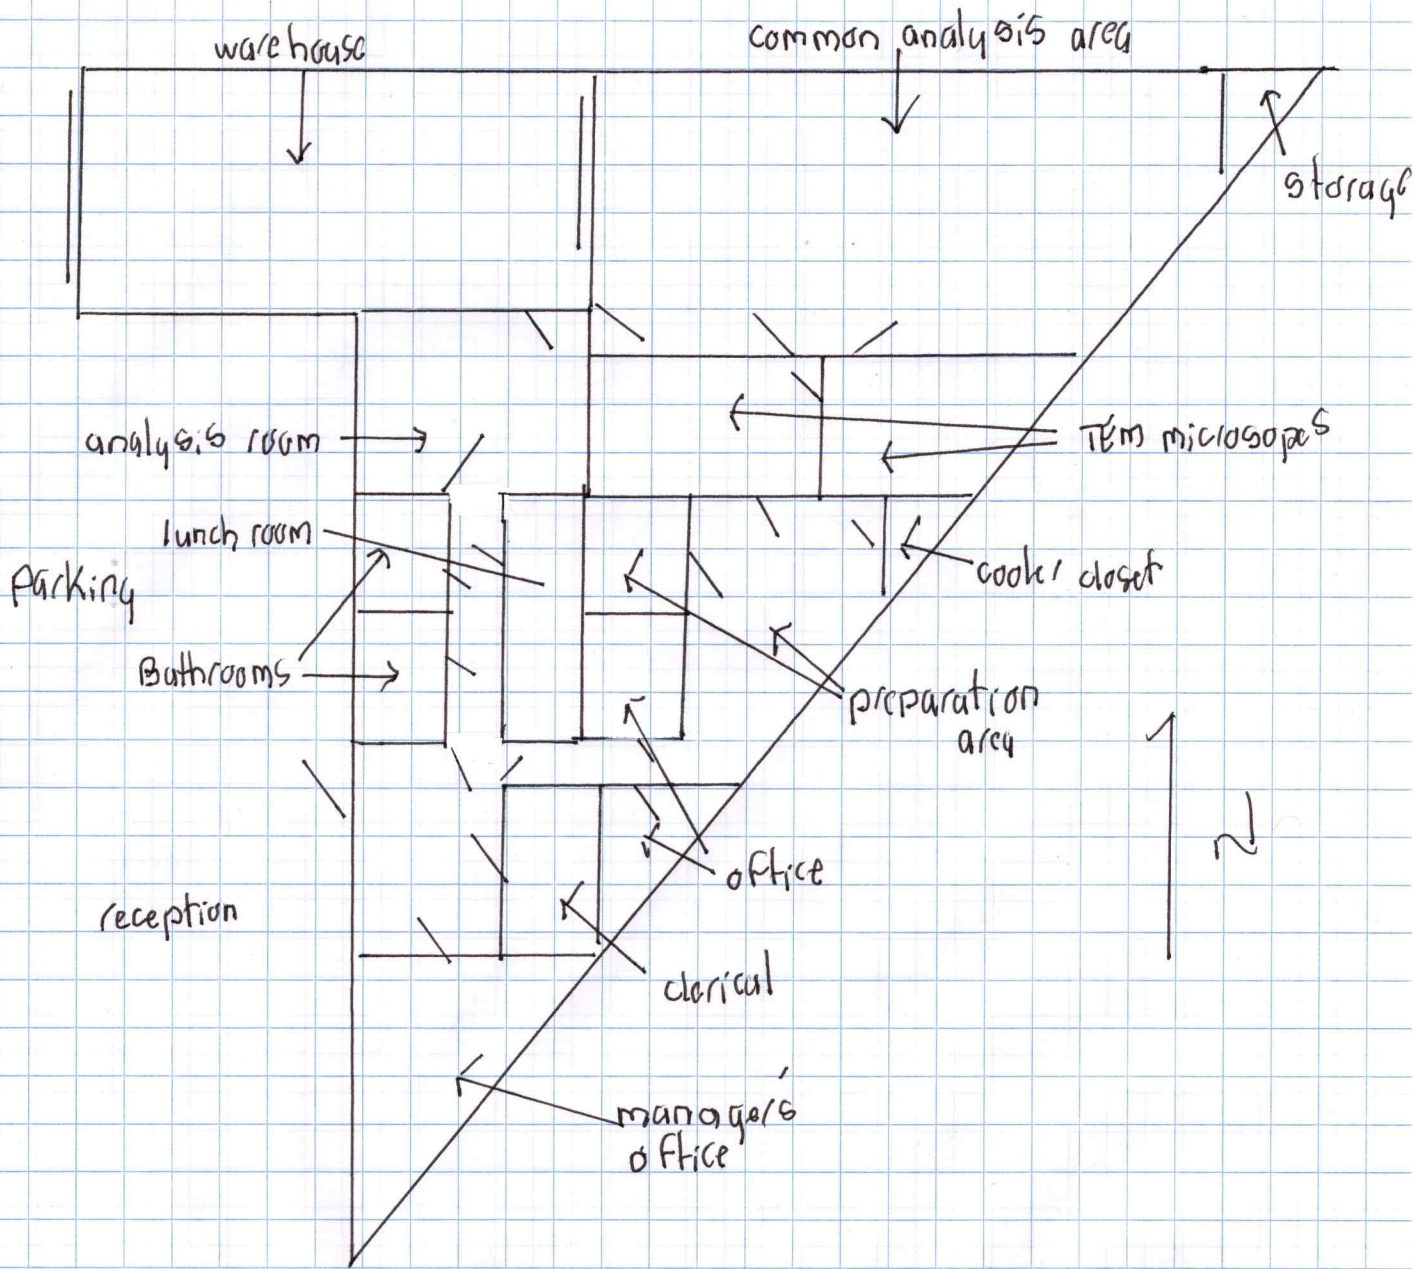 warehouse
common analysis area
storage
analysis room
TEM microsopes
lunch room
parking
cooler closet
Bathrooms
preparation
area
N
office
reception
clerical
manager's
office